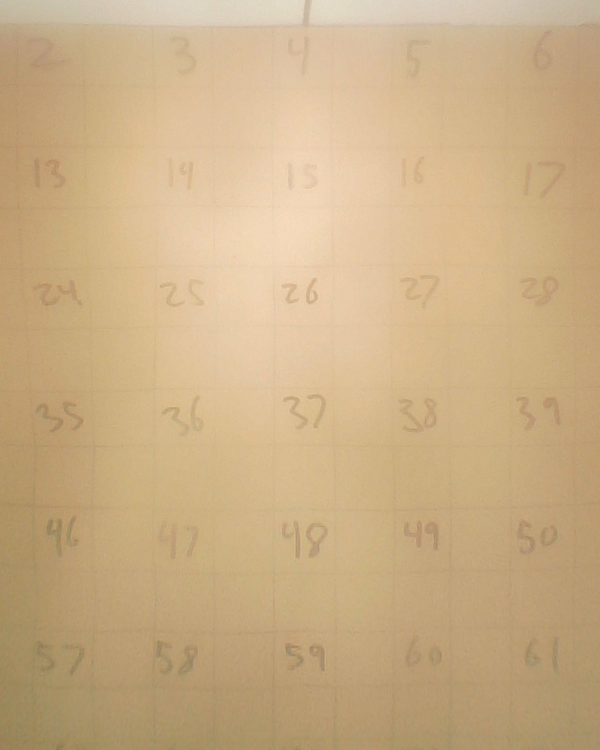 2 3 4 5 6
13 14 15 16 17
24 25 26 27 28
35 36 37 38 39
46 47 48 49 50
57 58 59 60 61